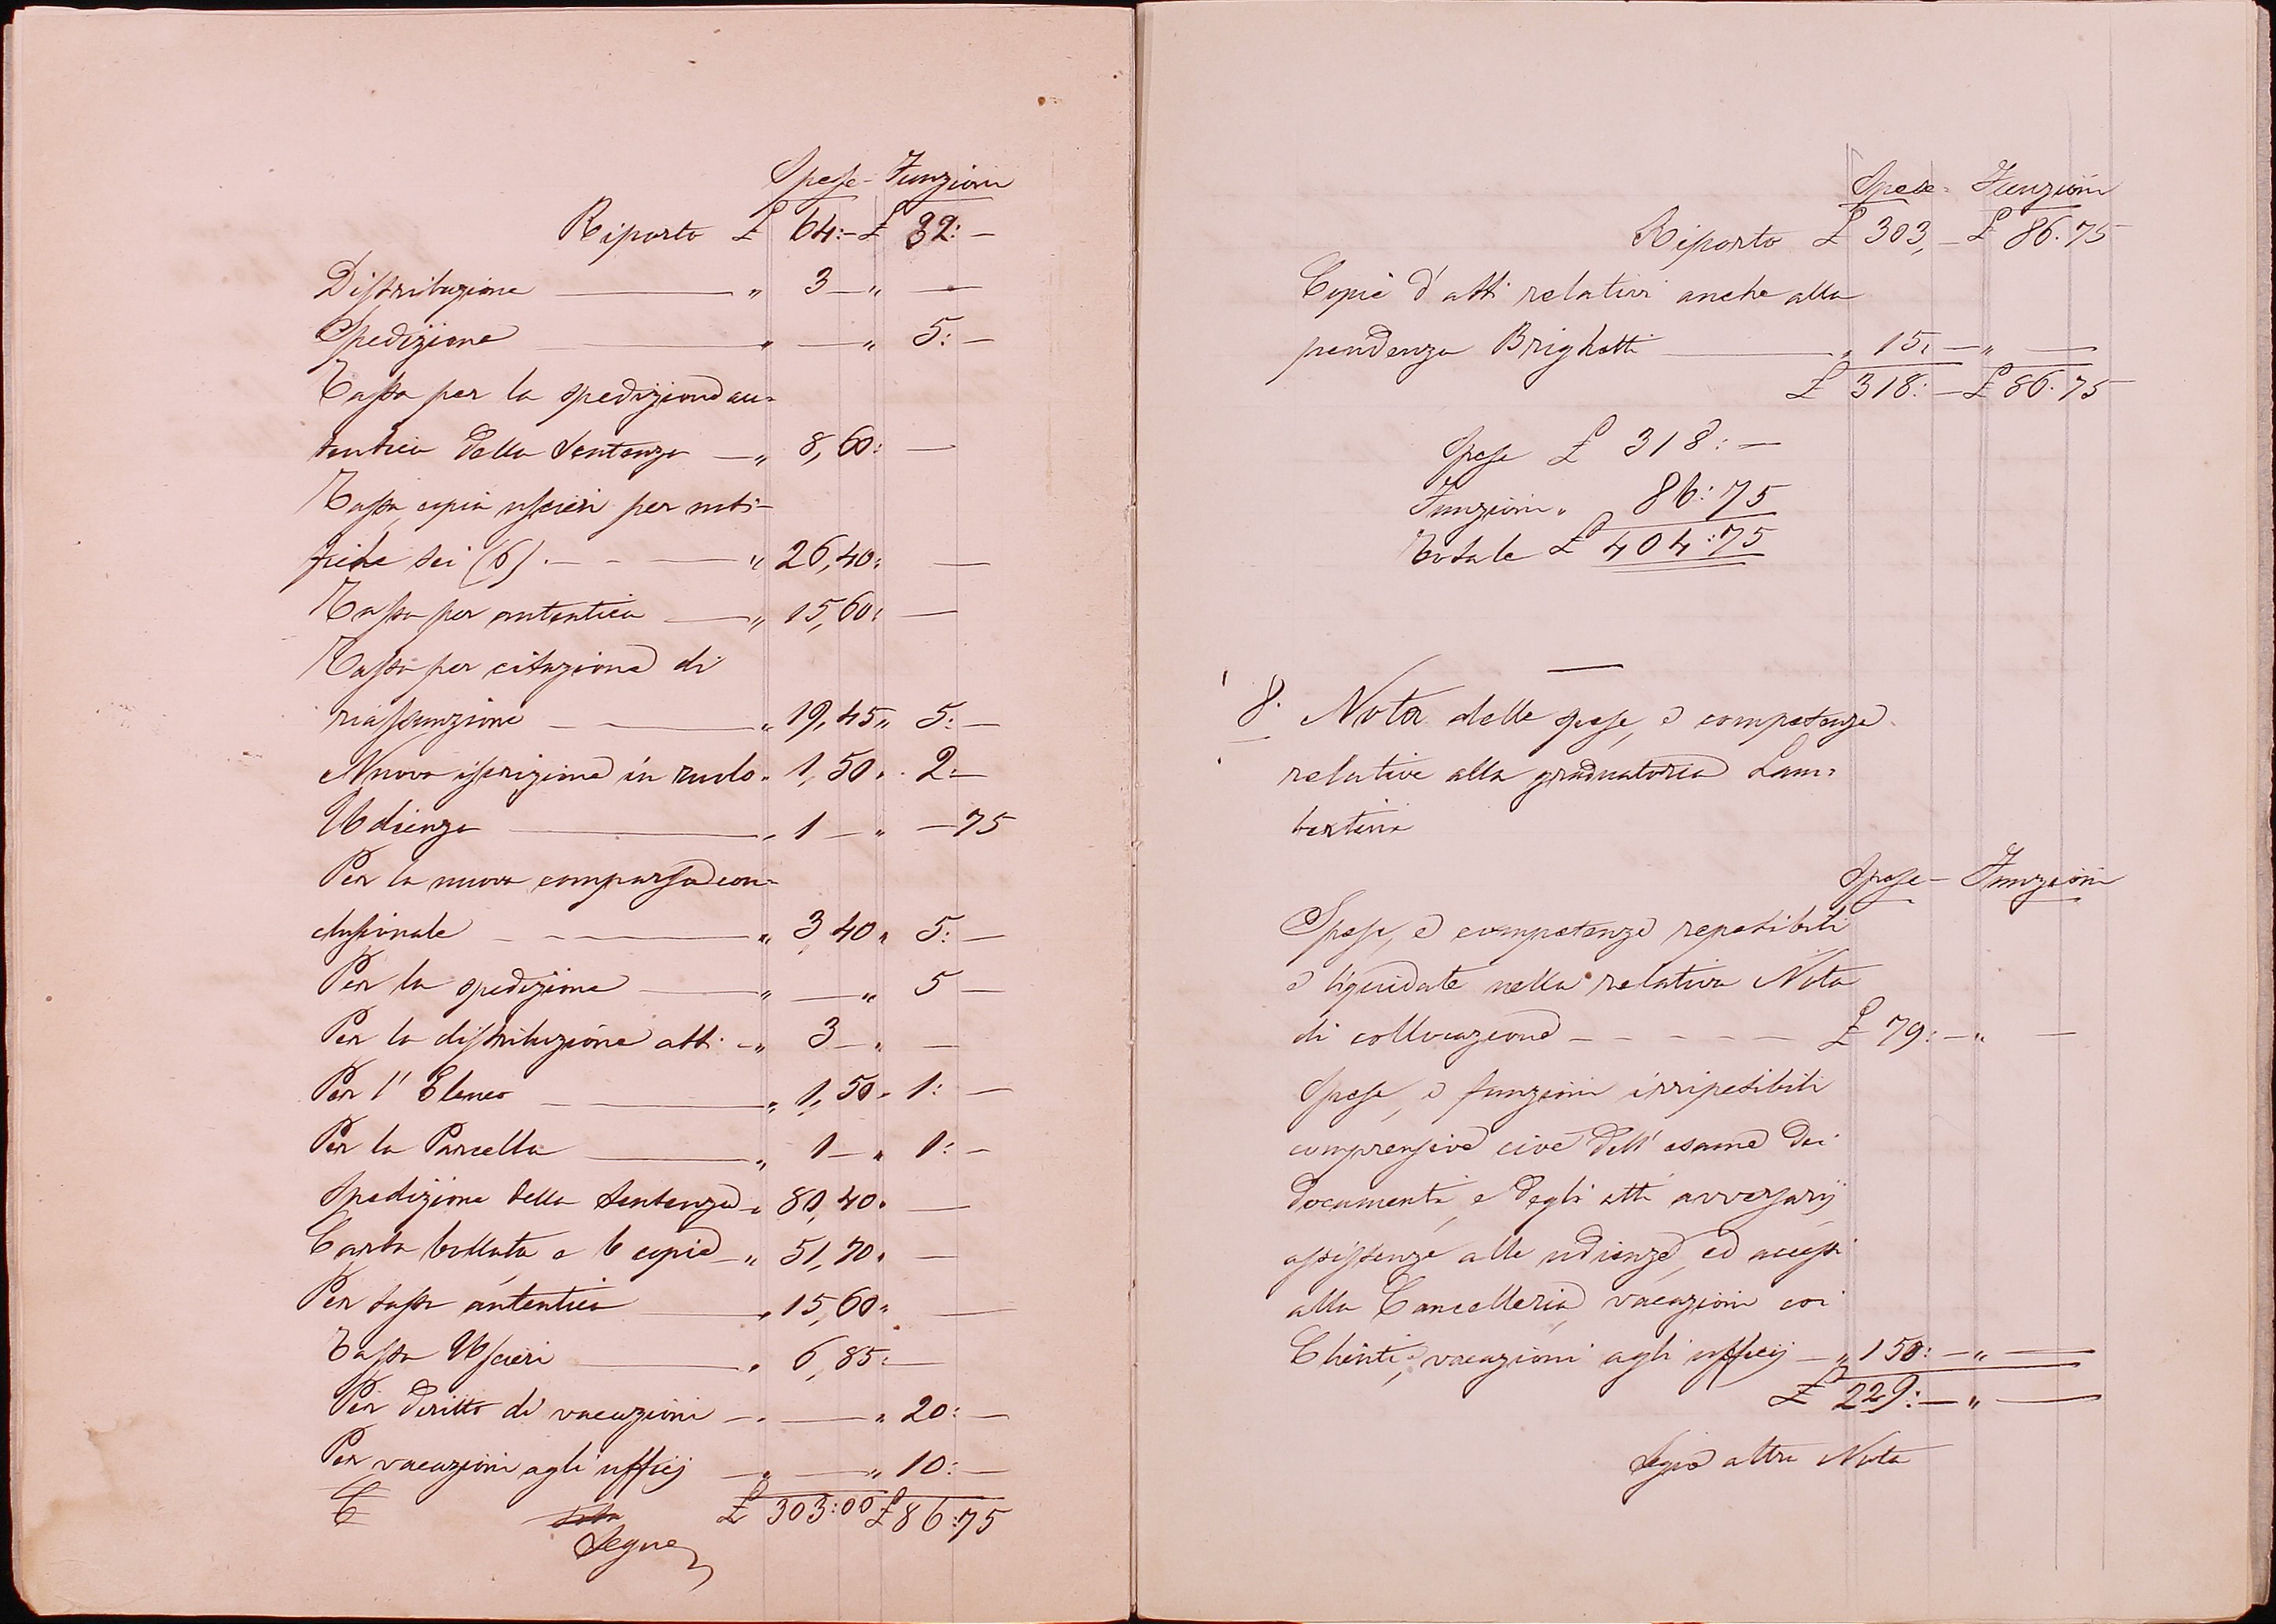 Spese - Funzioni
Riporto £ 64:- £ 32:-
Distribuzione — " 3 - " —
Spedizione — " — " 5:-
Tassa per la spedizione au-
tentica della Sentenza — " 8,60: —
Tassa, copia uscieri per noti-
fiche sei (6). - - — " 26,40: —
Tassa per autentica — " 15,60: —
Tassa per citazione di
riassunzione — " 19,45 " 5:-
Nuova iscrizione in ruolo " 1,50 " 2:-
Udienza — " 1 - " - 75
Per la nuova comparsa con-
clusionale — " 3 40 " 5:-
Per la spedizione — " — " 5 -
Per la distribuzione atti - " 3 - " —
Per l'Elenco — " 1,50 " 1:-
Per la Parcella — " 1 - " 1:-
Spedizione della Sentenza - " 80,40 " —
Carta bollata e 6 copie - " 51,70 " —
Per tassa autentica — " 15,60 " —
Tassa Uscieri — " 6,85: —
Per diritto di vacazioni - " — " 20:-
Per vacazioni agli ufficj — " — " 10:-
£ 303:00 £ 86:75
Segue
Spese - Funzioni
Riporto £ 303,- £ 86.75
Copie d'atti relativi anche alla
pendenza Brighetti — " 15,- " —
£ 318:- £ 86.75
Spese £ 318:-
Funzioni " 86:75
Totale £ 404:75
8. Nota delle spese, e competenze
relative alla graduatoria Lam-
bertini
Spese - Funzioni
Spese, e competenze repetibili
e liquidate nella relativa Nota
di collocazione - - - - - £ 79:- " —
Spese, e funzioni irripetibili
comprensive cioè dell'esame dei
documenti, e degli atti avversarij
assistenze alle udienze, ed accessi
alla Cancelleria, vacazioni coi
Clienti, vacazioni agli ufficij - " 150:- " —
£ 229:- " —
Segue altra Nota